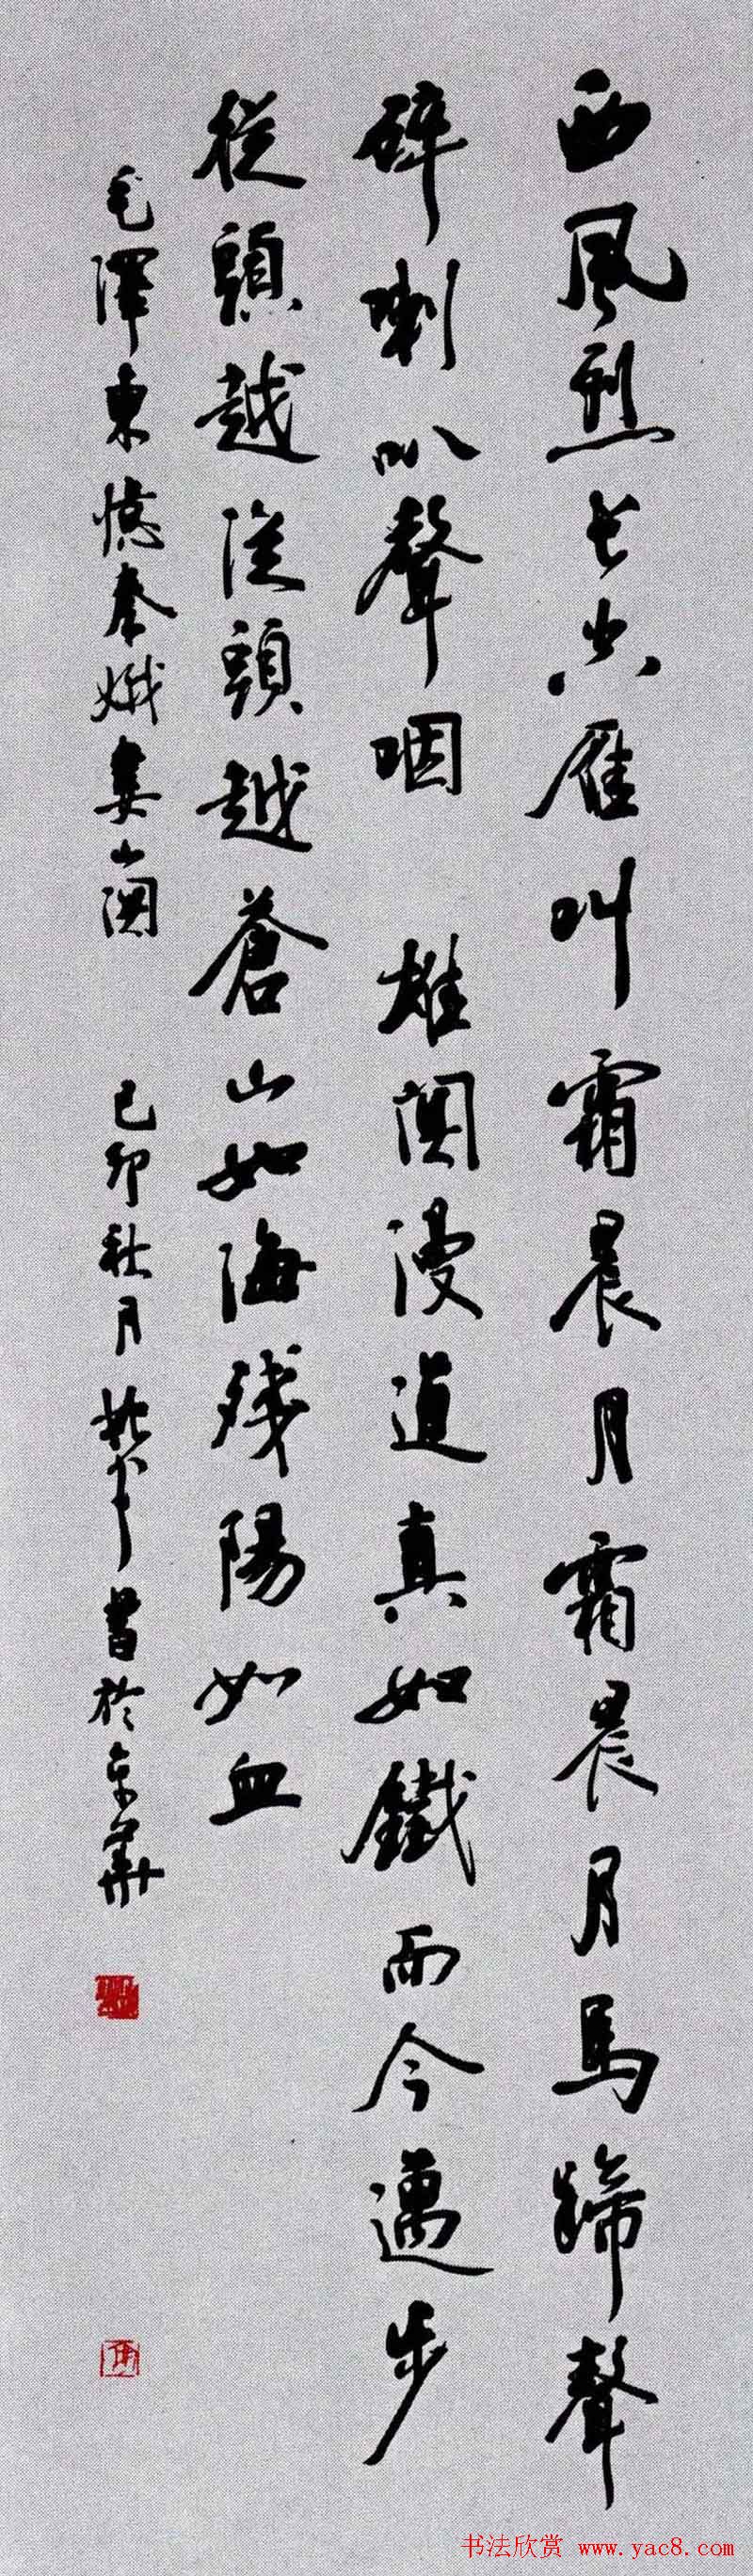 西風烈長空雁叫霜晨月霜晨月馬蹄聲
碎喇叭聲咽 雄關漫道真如鐵而今邁步
從頭越從頭越蒼山如海殘陽如血
毛澤東憶秦娥婁山關 己卯秋月書於京華
书法欣赏 www.yac8.com